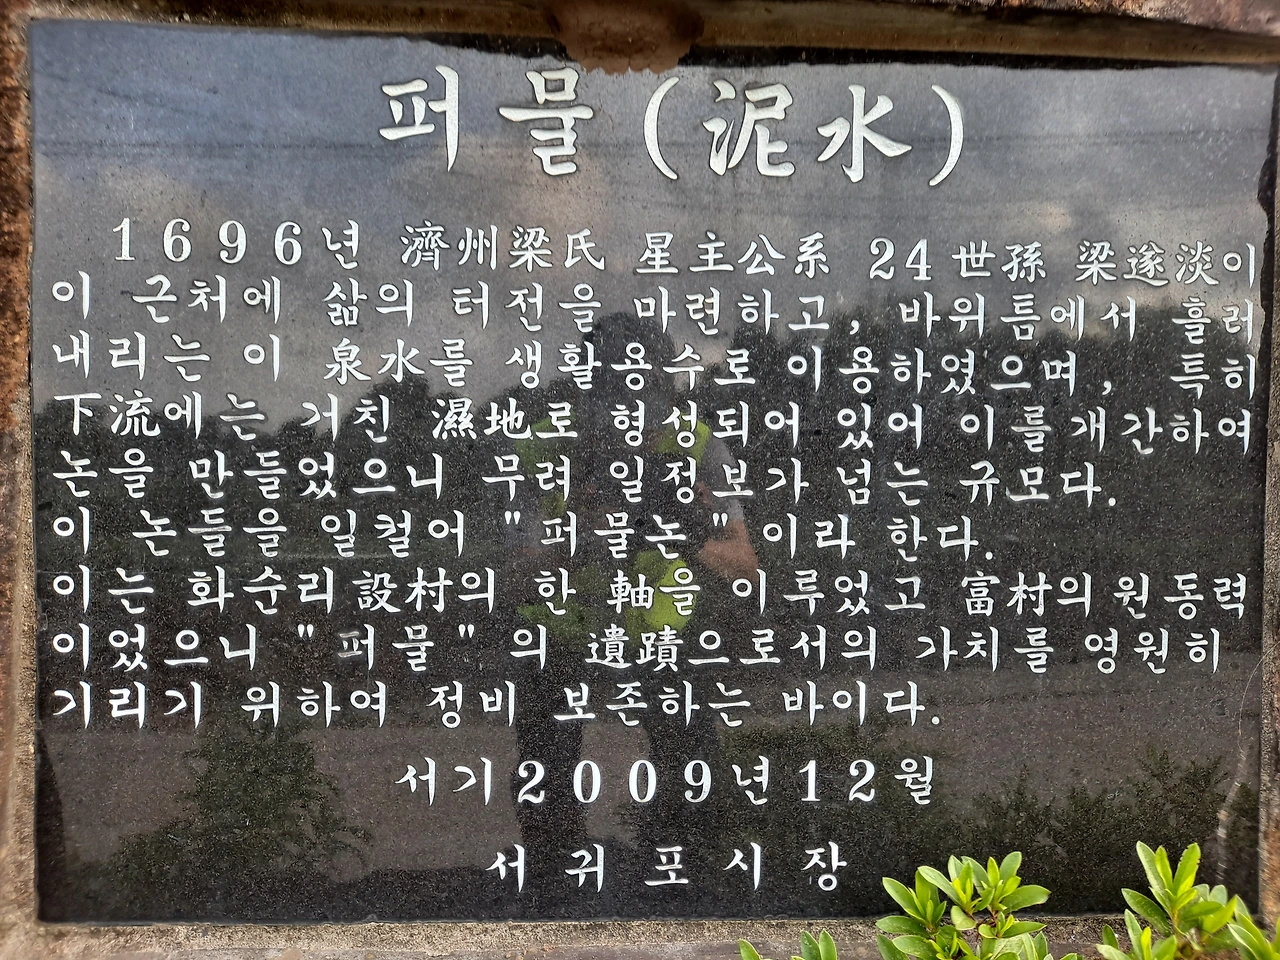 퍼물(泥水)
1696년 濟州梁氏 星主公系 24世孫 梁遂淡이
이 근처에 삶의 터전을 마련하고, 바위틈에서 흘러
내리는 이 泉水를 생활용수로 이용하였으며, 특히
下流에는 거친 濕地로 형성되어 있어 이를개간하여
논을 만들었으니 무려 일정보가 넘는 규모다.
이 논들을 일컬어 "퍼물논"이라 한다.
이는 화순리設村의 한 軸을 이루었고 富村의원동력
이었으니 "퍼물"의 遺蹟으로서의 가치를 영원히
기리기 위하여 정비 보존하는 바이다.
서기2009년12월
서귀포시장